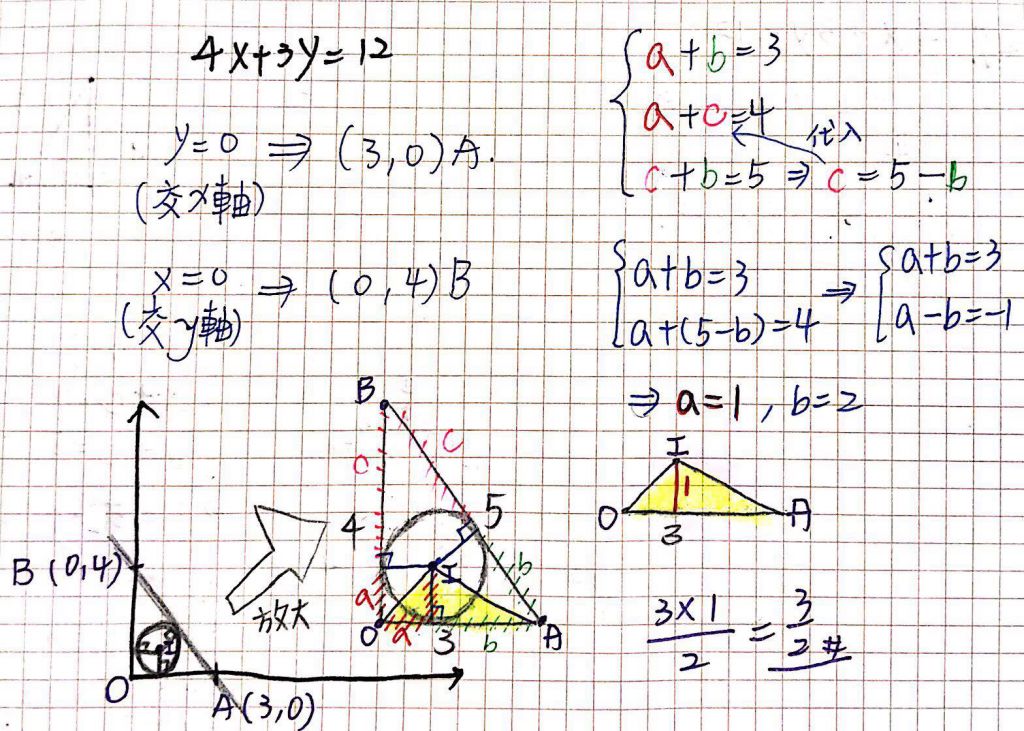 4x+3y=12
y=0 ⇒ (3,0)A.
(交x軸)
x=0 ⇒ (0,4)B
(交y軸)
a+b=3
a+c=4
代入
c+b=5 ⇒ c=5-b
a+b=3
a+(5-b)=4
⇒
a+b=3
a-b=-1
⇒ a=1, b=2
B(0,4)
I
O
A(3,0)
放大
B
c
c
4
5
I
b
a
O
a
3
b
A
I
1
O
A
3
3×1
2
=
3
2 #